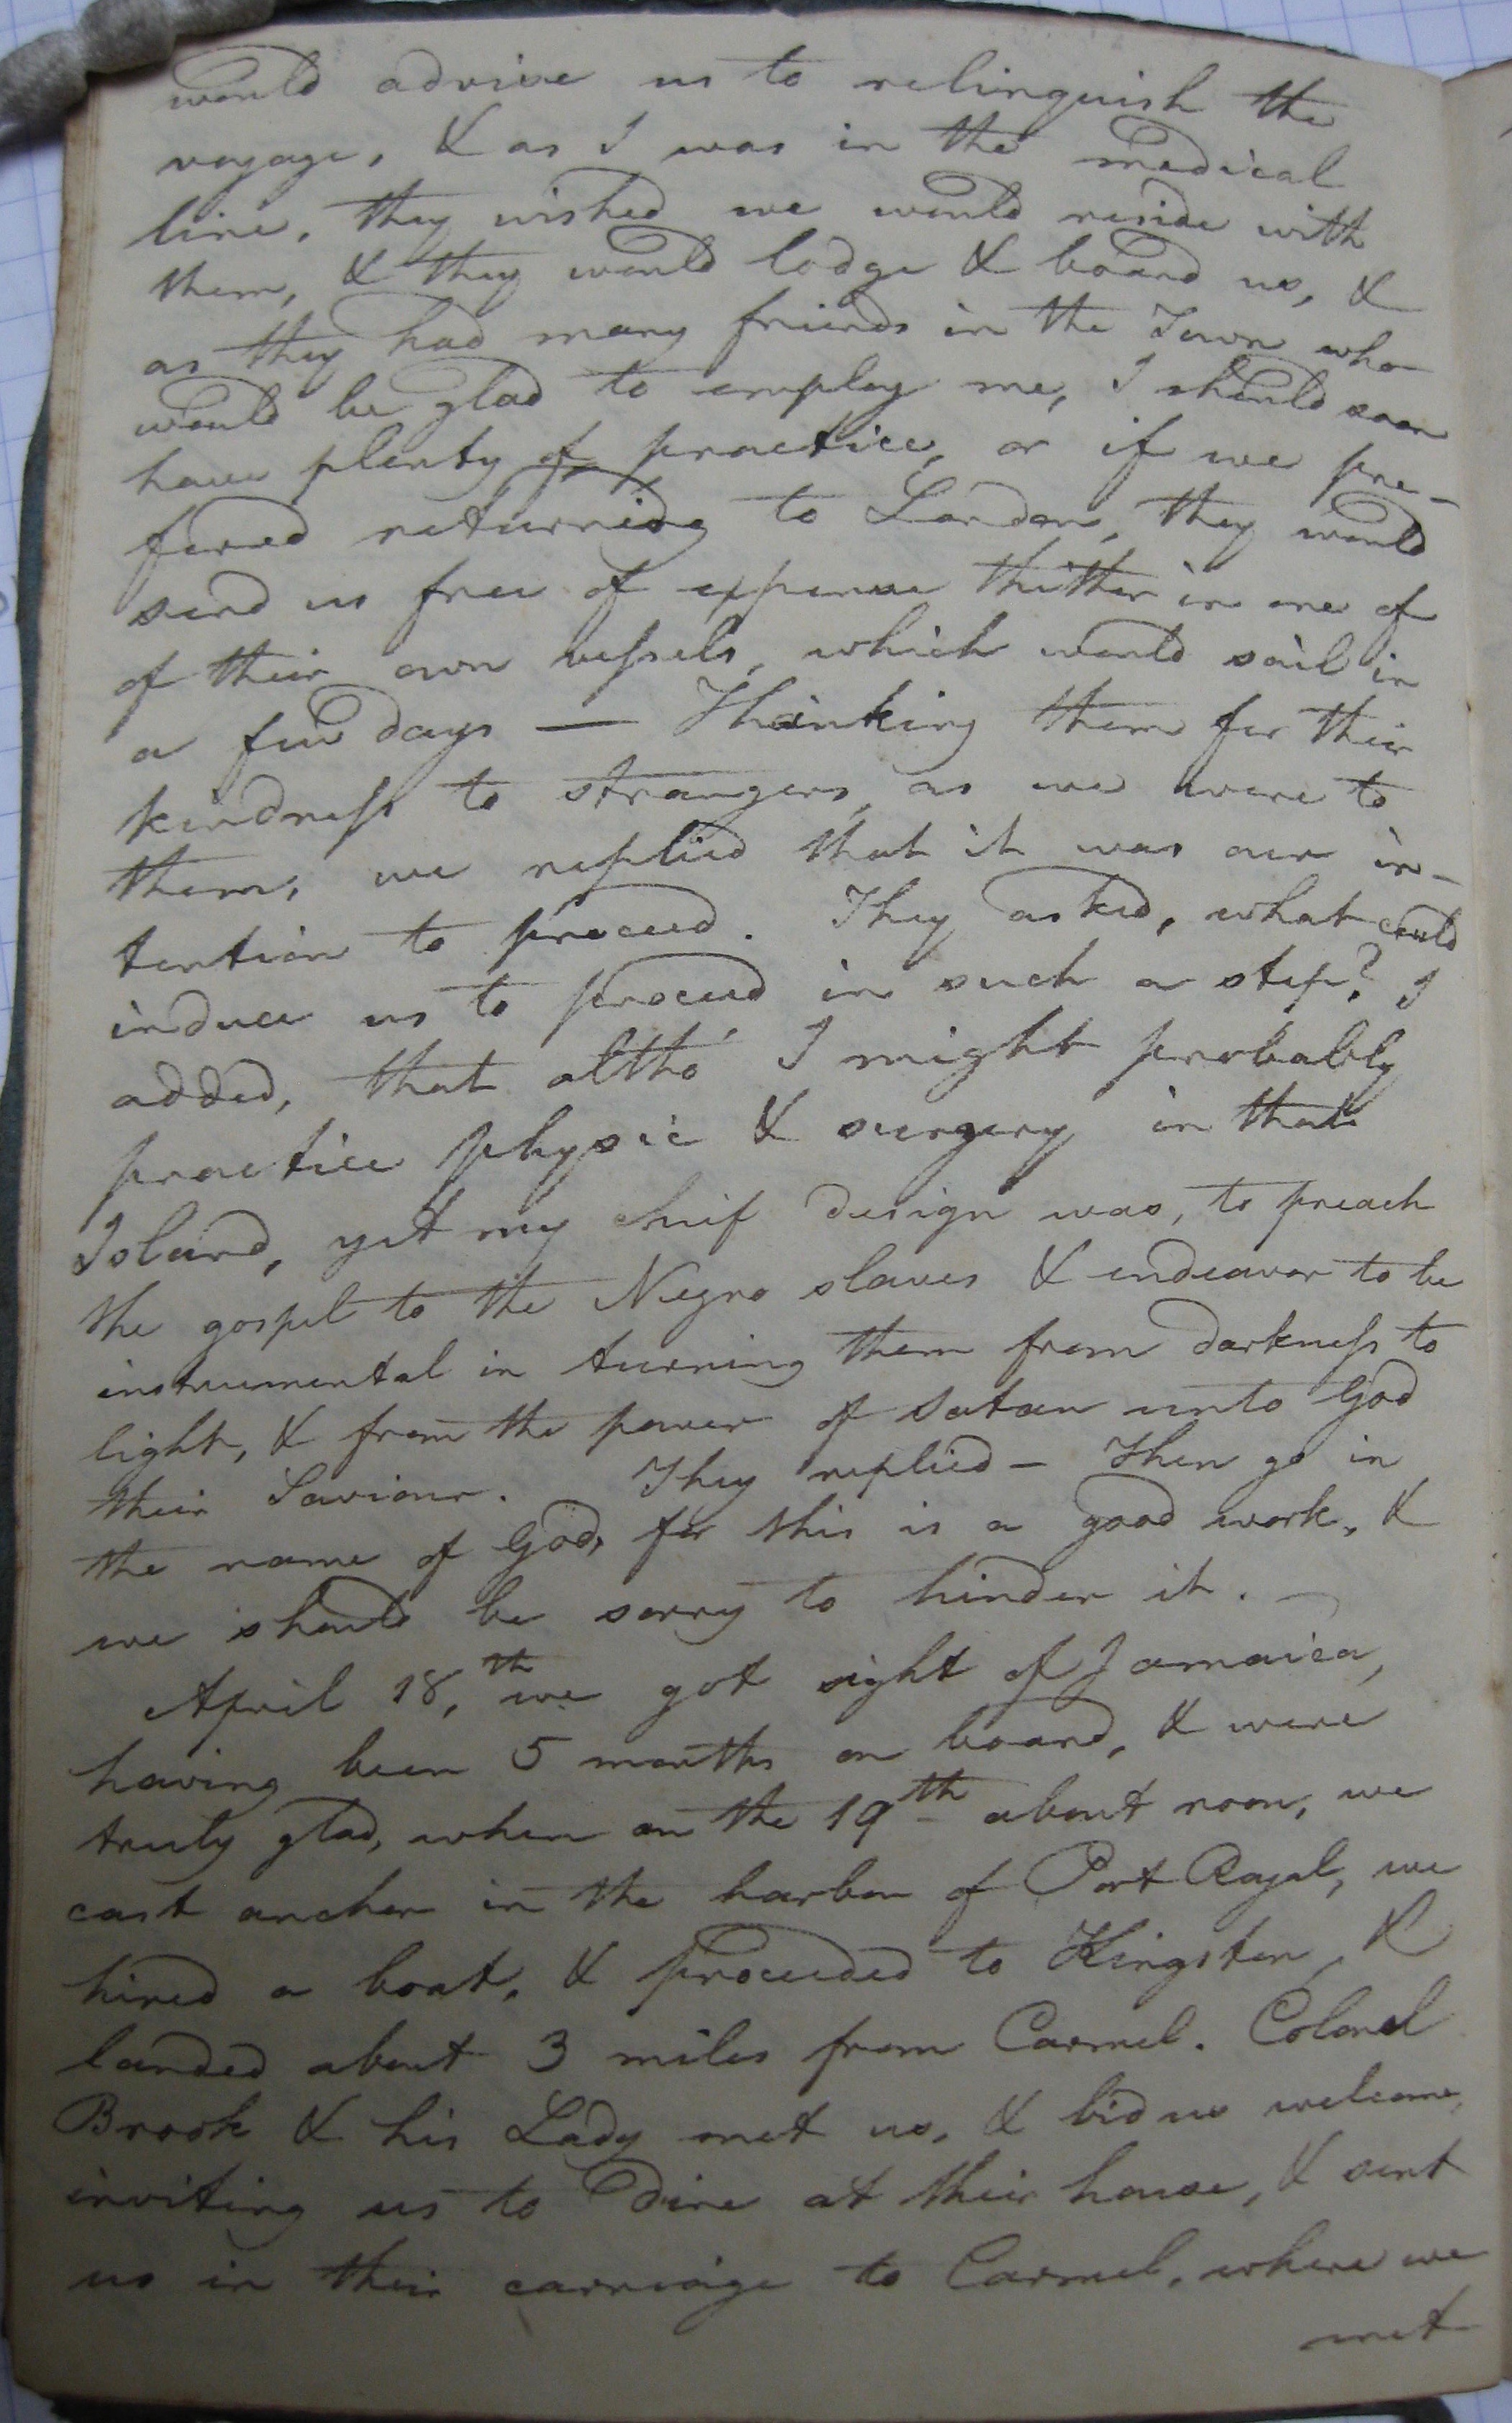 would advise us to relinquish the
voyage, & as I was in the medical
line, they wished we would reside with
them, & they would lodge & board us, &
as they had many friends in the Town who
would be glad to employ me, I should soon
have plenty of practice, or if we pre-
fered returning to London, they would
send us free of expense thither in one of
of their own vessels, which would sail in
a few days — Thanking them for their
kindness to strangers, as we were to
them, we replied that it was our in-
tention to proceed. They asked, what could
induce us to proceed in such a step? I
added, that altho' I might probably
practice physic & surgery in that
Island, yet my chief design was, to preach
the gospel to the Negro slaves & endeavor to be
instrumental in turning them from darkness to
light, & from the power of Satan unto God
their Saviour. They replied — Then go in
the name of God, for this is a good work, &
we should be sorry to hinder it. —
April 18,th we got sight of Jamaica,
having been 5 months on board, & were
truly glad, when on the 19th about noon, we
cast anchor in the harbor of Port Royal, we
hired a boat, & proceeded to Kingston, &
landed about 3 miles from Carmel. Colonel
Brook & his Lady met us, & bid us welcome,
inviting us to dine at their house, & sent
us in their carriage to Carmel, where we
met